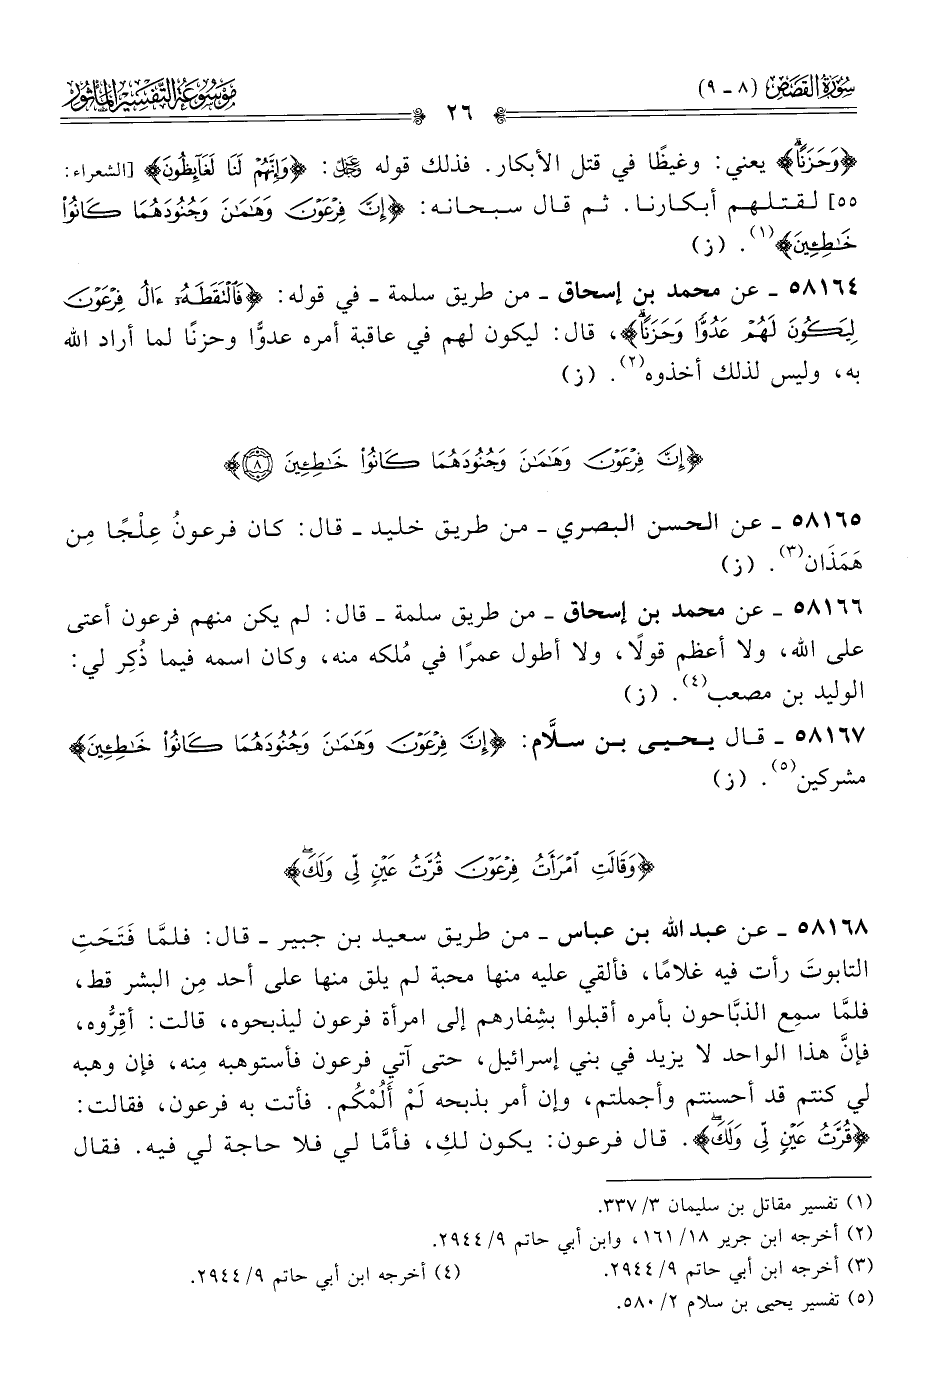 سورة القصص (٨ - ٩)
٢٦
موسوعة التفسير المأثور
﴿وَحَزَنًا﴾ يعني: وغيظًا في قتل الأبكار. فذلك قوله ﷿: ﴿وَإِنَّهُمْ لَنَا لَغَائِظُونَ﴾ [الشعراء:
٥٥] لقتلهم أبكارنا. ثم قال سبحانه: ﴿إِنَّ فِرْعَوْنَ وَهَامَانَ وَجُنُودَهُمَا كَانُوا۟
خَاطِـِٔينَ﴾(١). (ز)
٥٨١٦٤ ـ عن محمد بن إسحاق ـ من طريق سلمة ـ في قوله: ﴿فَالْتَقَطَهُۥٓ ءَالُ فِرْعَوْنَ
لِيَكُونَ لَهُمْ عَدُوًّا وَحَزَنًا﴾، قال: ليكون لهم في عاقبة أمره عدوًّا وحزنًا لما أراد الله
به، وليس لذلك أخذوه(٢). (ز)
﴿إِنَّ فِرْعَوْنَ وَهَامَانَ وَجُنُودَهُمَا كَانُوا۟ خَاطِـِٔينَ ٨﴾
٥٨١٦٥ ـ عن الحسن البصري ـ من طريق خليد ـ قال: كان فرعونُ عِلْجًا مِن
هَمَذَان(٣). (ز)
٥٨١٦٦ ـ عن محمد بن إسحاق ـ من طريق سلمة ـ قال: لم يكن منهم فرعون أعتى
على الله، ولا أعظم قولًا، ولا أطول عمرًا في مُلكه منه، وكان اسمه فيما ذُكِر لي:
الوليد بن مصعب(٤). (ز)
٥٨١٦٧ ـ قال يحيى بن سلَّام: ﴿إِنَّ فِرْعَوْنَ وَهَامَانَ وَجُنُودَهُمَا كَانُوا۟ خَاطِـِٔينَ﴾
مشركين(٥). (ز)
﴿وَقَالَتِ ٱمْرَأَتُ فِرْعَوْنَ قُرَّتُ عَيْنٍ لِّى وَلَكَۖ﴾
٥٨١٦٨ ـ عن عبد الله بن عباس ـ من طريق سعيد بن جبير ـ قال: فلمَّا فَتَحَتِ
التابوتَ رأت فيه غلامًا، فألقي عليه منها محبة لم يلق منها على أحد مِن البشر قط،
فلمَّا سمِع الذبَّاحون بأمره أقبلوا بشِفارهم إلى امرأة فرعون ليذبحوه، قالت: أقِرُّوه،
فإنَّ هذا الواحد لا يزيد في بني إسرائيل، حتى آتي فرعون فأستوهبه مِنه، فإن وهبه
لي كنتم قد أحسنتم وأجملتم، وإن أمر بذبحه لَمْ أَلُمْكُم. فأتت به فرعون، فقالت:
﴿قُرَّتُ عَيْنٍ لِّى وَلَكَۖ﴾. قال فرعون: يكون لكِ، فأمَّا لي فلا حاجة لي فيه. فقال
(١) تفسير مقاتل بن سليمان ٣/ ٣٣٧.
(٢) أخرجه ابن جرير ١٨/ ١٦١، وابن أبي حاتم ٩/ ٢٩٤٤.
(٣) أخرجه ابن أبي حاتم ٩/ ٢٩٤٤. (٤) أخرجه ابن أبي حاتم ٩/ ٢٩٤٤.
(٥) تفسير يحيى بن سلام ٢/ ٥٨٠.